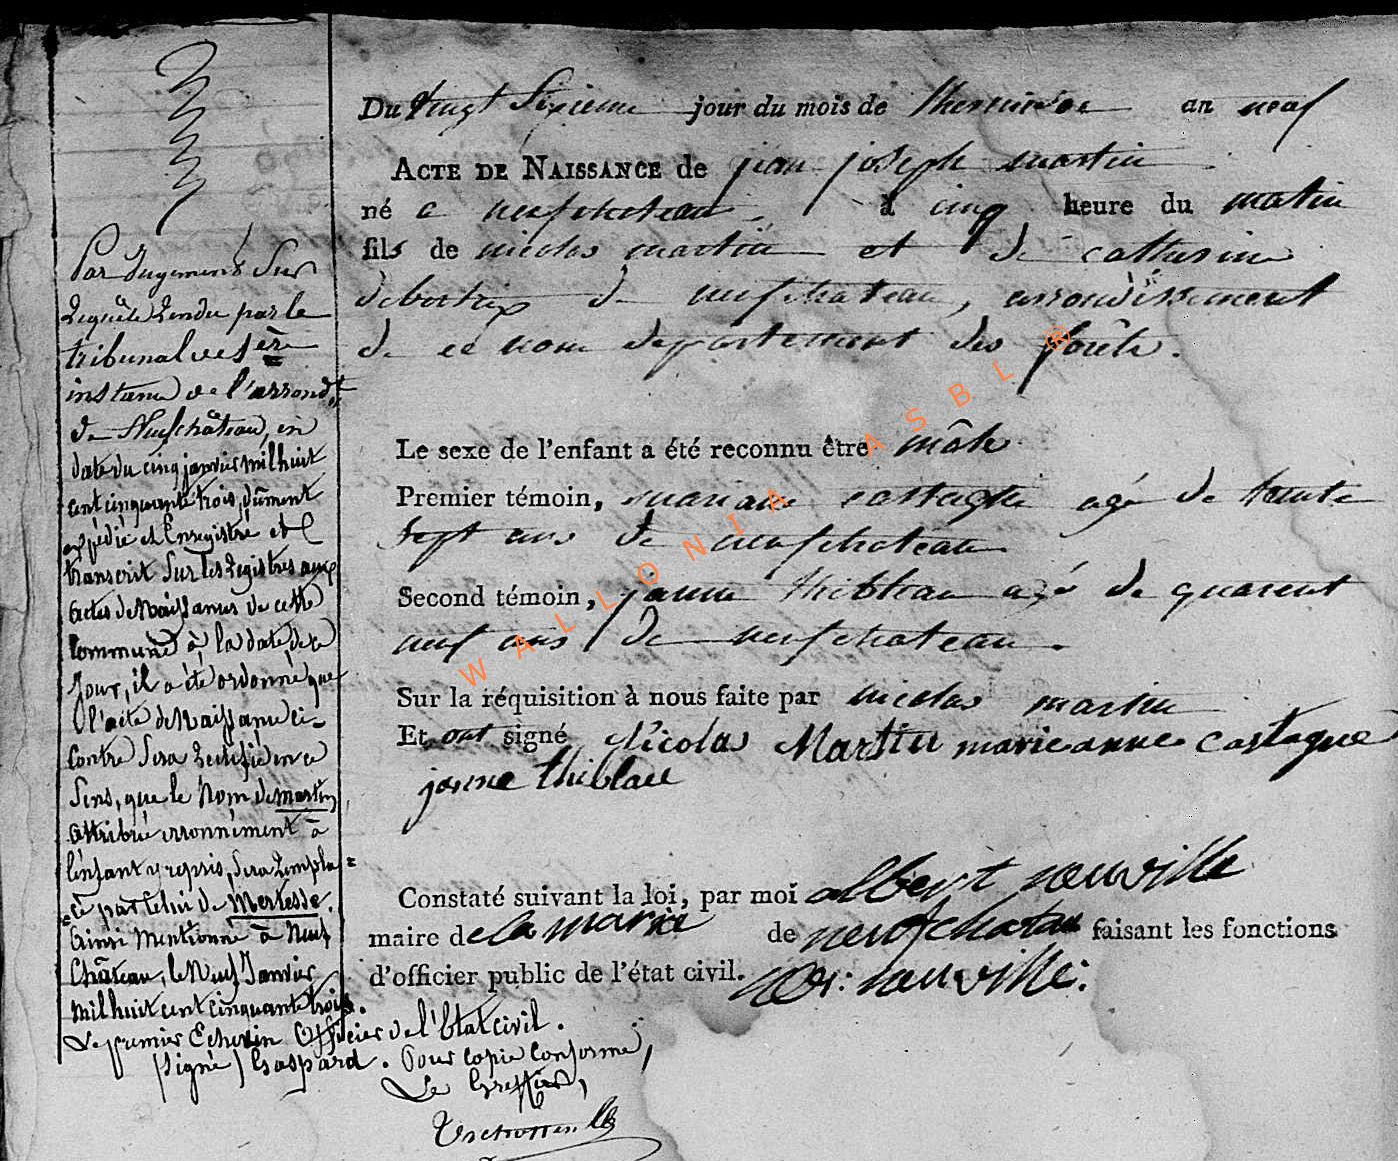 Du vingt sixieme jour du mois de thermidor an neuf
ACTE DE NAISSANCE de jean joseph martin
né a neufchateau, à cinq heure du matin
fils de nicolas martin et de catherine
de neufchateau, arrondissement
de ce nom departement des forêts.
Le sexe de l'enfant a été reconnu être mâle
Premier témoin, mariane castagne agé de trente
sept ans de neufchateau
Second témoin, janne thiblau agé de quarent
neuf ans de neufchateau.
Sur la réquisition à nous faite par nicolas martin
Et ont signé Nicolas Martin marie anne castagne
janne thiblau
Constaté suivant la loi, par moi albert neuville
maire de la marie de neufchatau faisant les fonctions
d'officier public de l'état civil. neuville.
Par Jugement Sur
Requête Rendu par le
tribunal de 1ère
instance de l'arrondt
de Neufchâteau, en
date du cinq janvier mil huit
cent cinquante trois, dûment
expédié et Enregistré et
transcrit Sur les Registres aux
actes de Naissances de cette
Commune à la date de ce
Jour, il a été ordonné que
l'acte de Naissance ci-
Contre Sera Rectifié en ce
Sens, que le Nom de martin
attribué erronnément à
l'enfant y repris, Sera Rempla=
=cé par celui de Mertesse.
Ainsi Mentionné à Neuf
Château, le Neuf Janvier
mil huit cent cinquante trois.
Le premier Echevin Officier de l'Etat civil.
(signé) Gaspard. Pour copie conforme,
Le Greffier,
WALLONIA ASBL ®